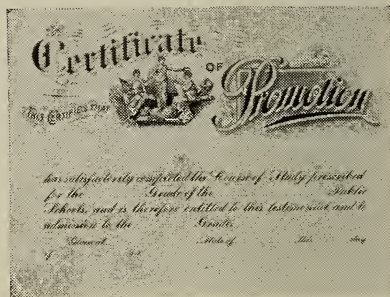 Certificate
OF
Promotion
THIS CERTIFIES THAT
has satisfactorily completed the Course of Study prescribed
for the Grade of the Public
Schools, and is therefore entitled to this testimonial and to
admission to the Grade.
Given at State of this day
of